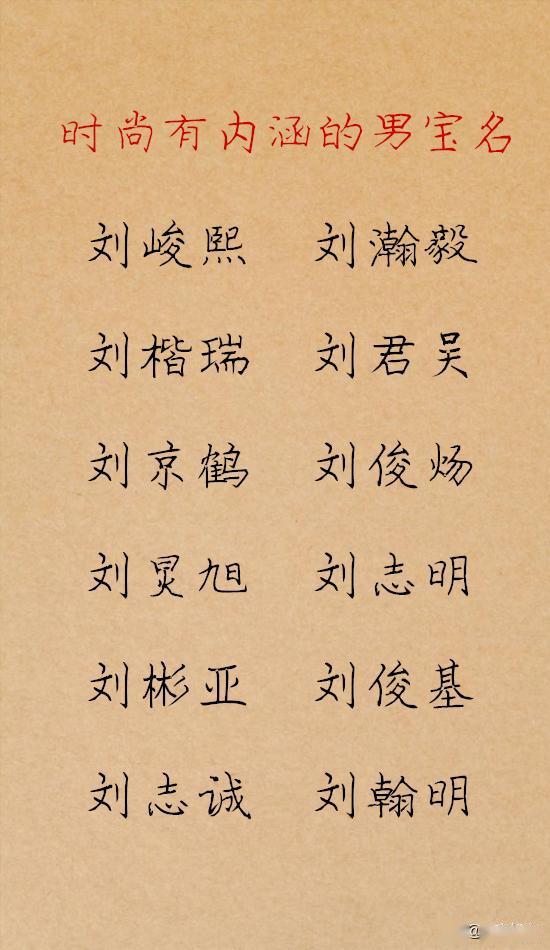 时尚有内涵的男宝名
刘峻熙 刘瀚毅
刘楷瑞 刘君吴
刘京鹤 刘俊炀
刘炅旭 刘志明
刘彬亚 刘俊基
刘志诚 刘翰明
@